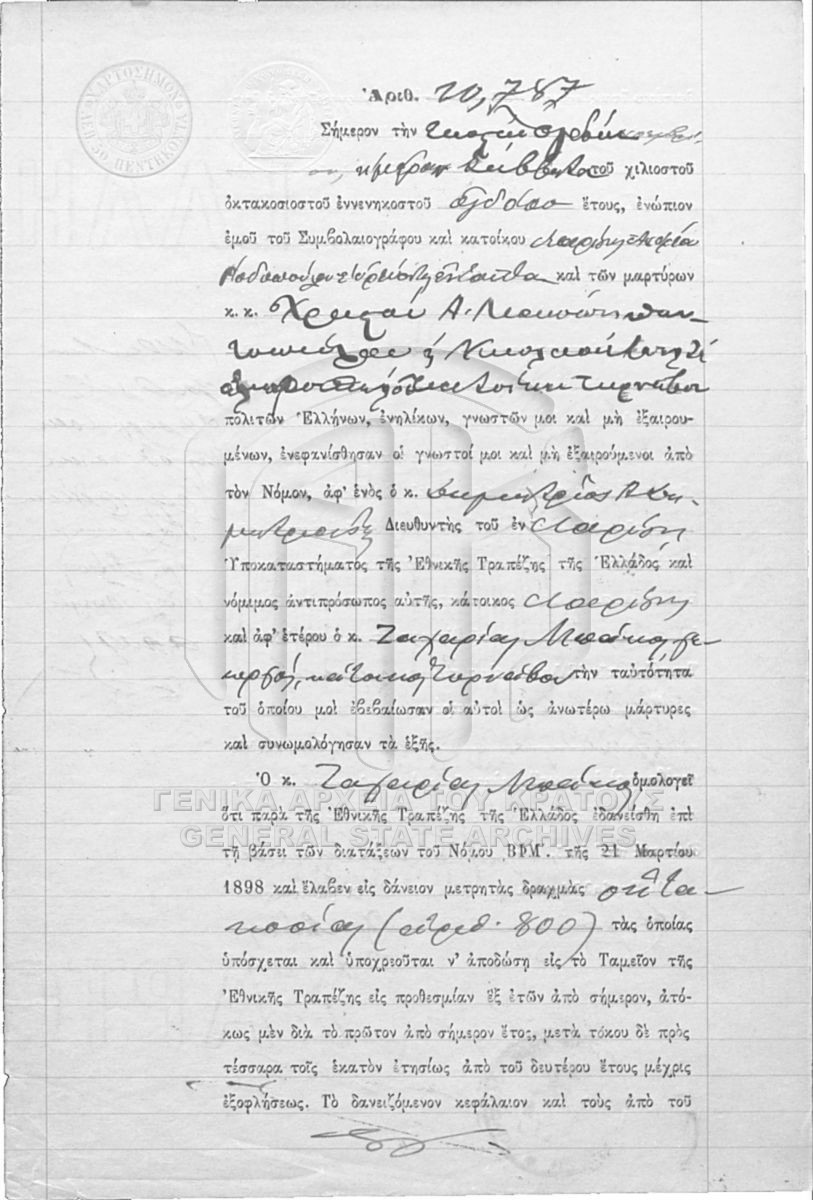 ΧΑΡΤΟΣΗΜΟΝ
ΛΕΠ. 50 ΠΕΝΤΗΚΟΝΤΑ
Ἀριθ. 20,787
Σήμερον τὴν
ἡμέραν Σάββατον τοῦ χιλιοστοῦ
ὀκτακοσιοστοῦ ἐννενηκοστοῦ ὀγδόου ἔτους, ἐνώπιον
ἐμοῦ τοῦ Συμβολαιογράφου καὶ κατοίκου Λαρίσης
καὶ τῶν μαρτύρων
κ. κ. Α. παν-
τοπώλου
Τυρνάβου
πολιτῶν Ἑλλήνων, ἐνηλίκων, γνωστῶν μοι καὶ μὴ ἐξαιρου-
μένων, ἐνεφανίσθησαν οἱ γνωστοί μοι καὶ μὴ ἐξαιρούμενοι ἀπὸ
τὸν Νόμον, ἀφ' ἑνὸς ὁ κ. Δημήτριος
Διευθυντὴς τοῦ ἐν Λαρίσῃ
Ὑποκαταστήματος τῆς Ἐθνικῆς Τραπέζης τῆς Ἑλλάδος καὶ
νόμιμος ἀντιπρόσωπος αὐτῆς, κάτοικος Λαρίσης
καὶ ἀφ' ἑτέρου ὁ κ. Ζαχαρίας Μπάκας, γε-
ωργός, κάτοικος Τυρνάβου τὴν ταὐτότητα
τοῦ ὁποίου μοὶ ἐβεβαίωσαν οἱ αὐτοὶ ὡς ἀνωτέρω μάρτυρες
καὶ συνωμολόγησαν τὰ ἑξῆς.
Ὁ κ. Ζαχαρίας Μπάκας ὁμολογεῖ
ΓΕΝΙΚΑ ΑΡΧΕΙΑ ΤΟΥ ΚΡΑΤΟΥΣ
ὅτι παρὰ τῆς Ἐθνικῆς Τραπέζης τῆς Ἑλλάδος ἐδανείσθη ἐπὶ
GENERAL STATE ARCHIVES
τῇ βάσει τῶν διατάξεων τοῦ Νόμου ΒΦΜ'. τῆς 21 Μαρτίου
1898 καὶ ἔλαβεν εἰς δάνειον μετρητὰς δραχμὰς ὀκτα-
κοσίας (ἀριθ. 800) τὰς ὁποίας
ὑπόσχεται καὶ ὑποχρεοῦται ν' ἀποδώσῃ εἰς τὸ Ταμεῖον τῆς
Ἐθνικῆς Τραπέζης εἰς προθεσμίαν ἓξ ἐτῶν ἀπὸ σήμερον, ἀτό-
κως μὲν διὰ τὸ πρῶτον ἀπὸ σήμερον ἔτος, μετὰ τόκου δὲ πρὸς
τέσσαρα τοῖς ἑκατὸν ἐτησίως ἀπὸ τοῦ δευτέρου ἔτους μέχρις
ἐξοφλήσεως. Τὸ δανειζόμενον κεφάλαιον καὶ τοὺς ἀπὸ τοῦ